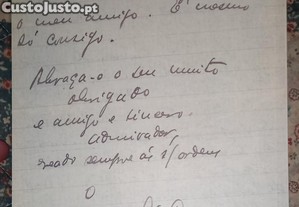 CustoJusto.pt
o meu amigo. É mesmo
só consigo.
Abraça-o o seu muito
obrigado
e amigo e sincero
admirador,
sempre às s/ ordens
O